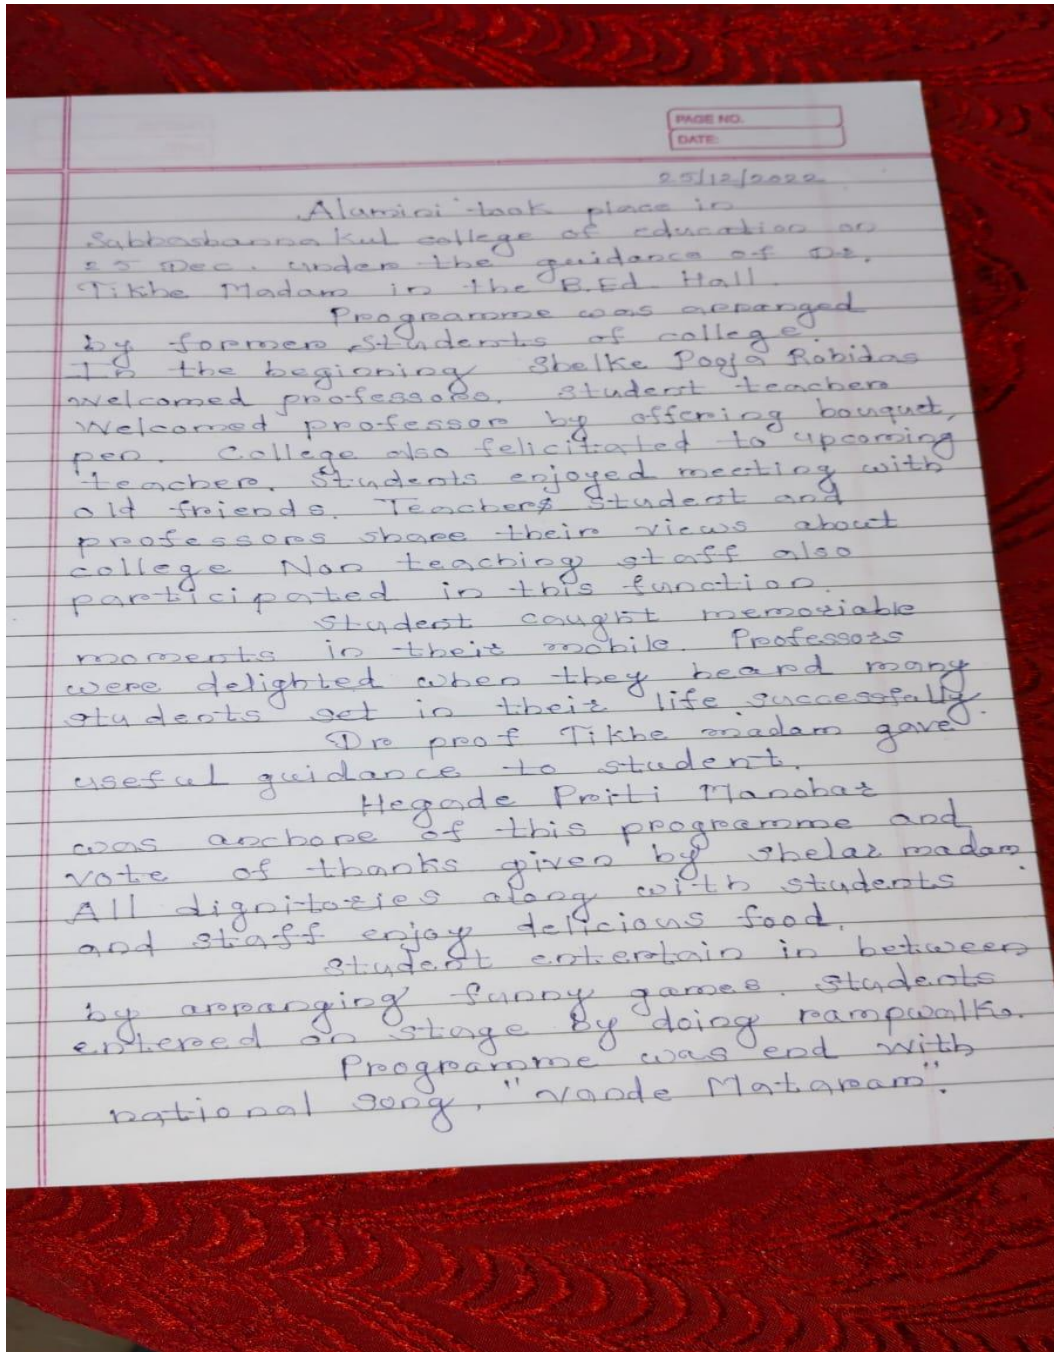 PAGE NO.
DATE:
25/12/2022
Alamini took place in
Sabhashanna Kul college of education on
25 Dec. under the guidance of Dr.
Tikhe Madam in the B.Ed. Hall.
Programme was arranged
by former students of college.
In the beginning Shelke Pooja Rohidas
welcomed professors. student teacher
Welcomed professor by offering bouquet,
pen. College also felicitrated to upcoming
teacher. Students enjoyed meeting with
old friends. Teachers student and
professors share their views about
college Non teaching staff also
participated in this function.
Student caught memoriable
moments in their mobile. Professors
were delighted when they heard many
students set in their life successfally.
Dr prof Tikhe madam gave
useful guidance to student.
Hegade Priti Manohar
was anchore of this programme and
vote of thanks given by shelar madam.
All dignitories along with students
and staff enjoy delicious food.
Student entertain in between
by arranging funny games. students
entered on stage by doing rampwalks.
Programme was end with
national song, "Vande Mataram".